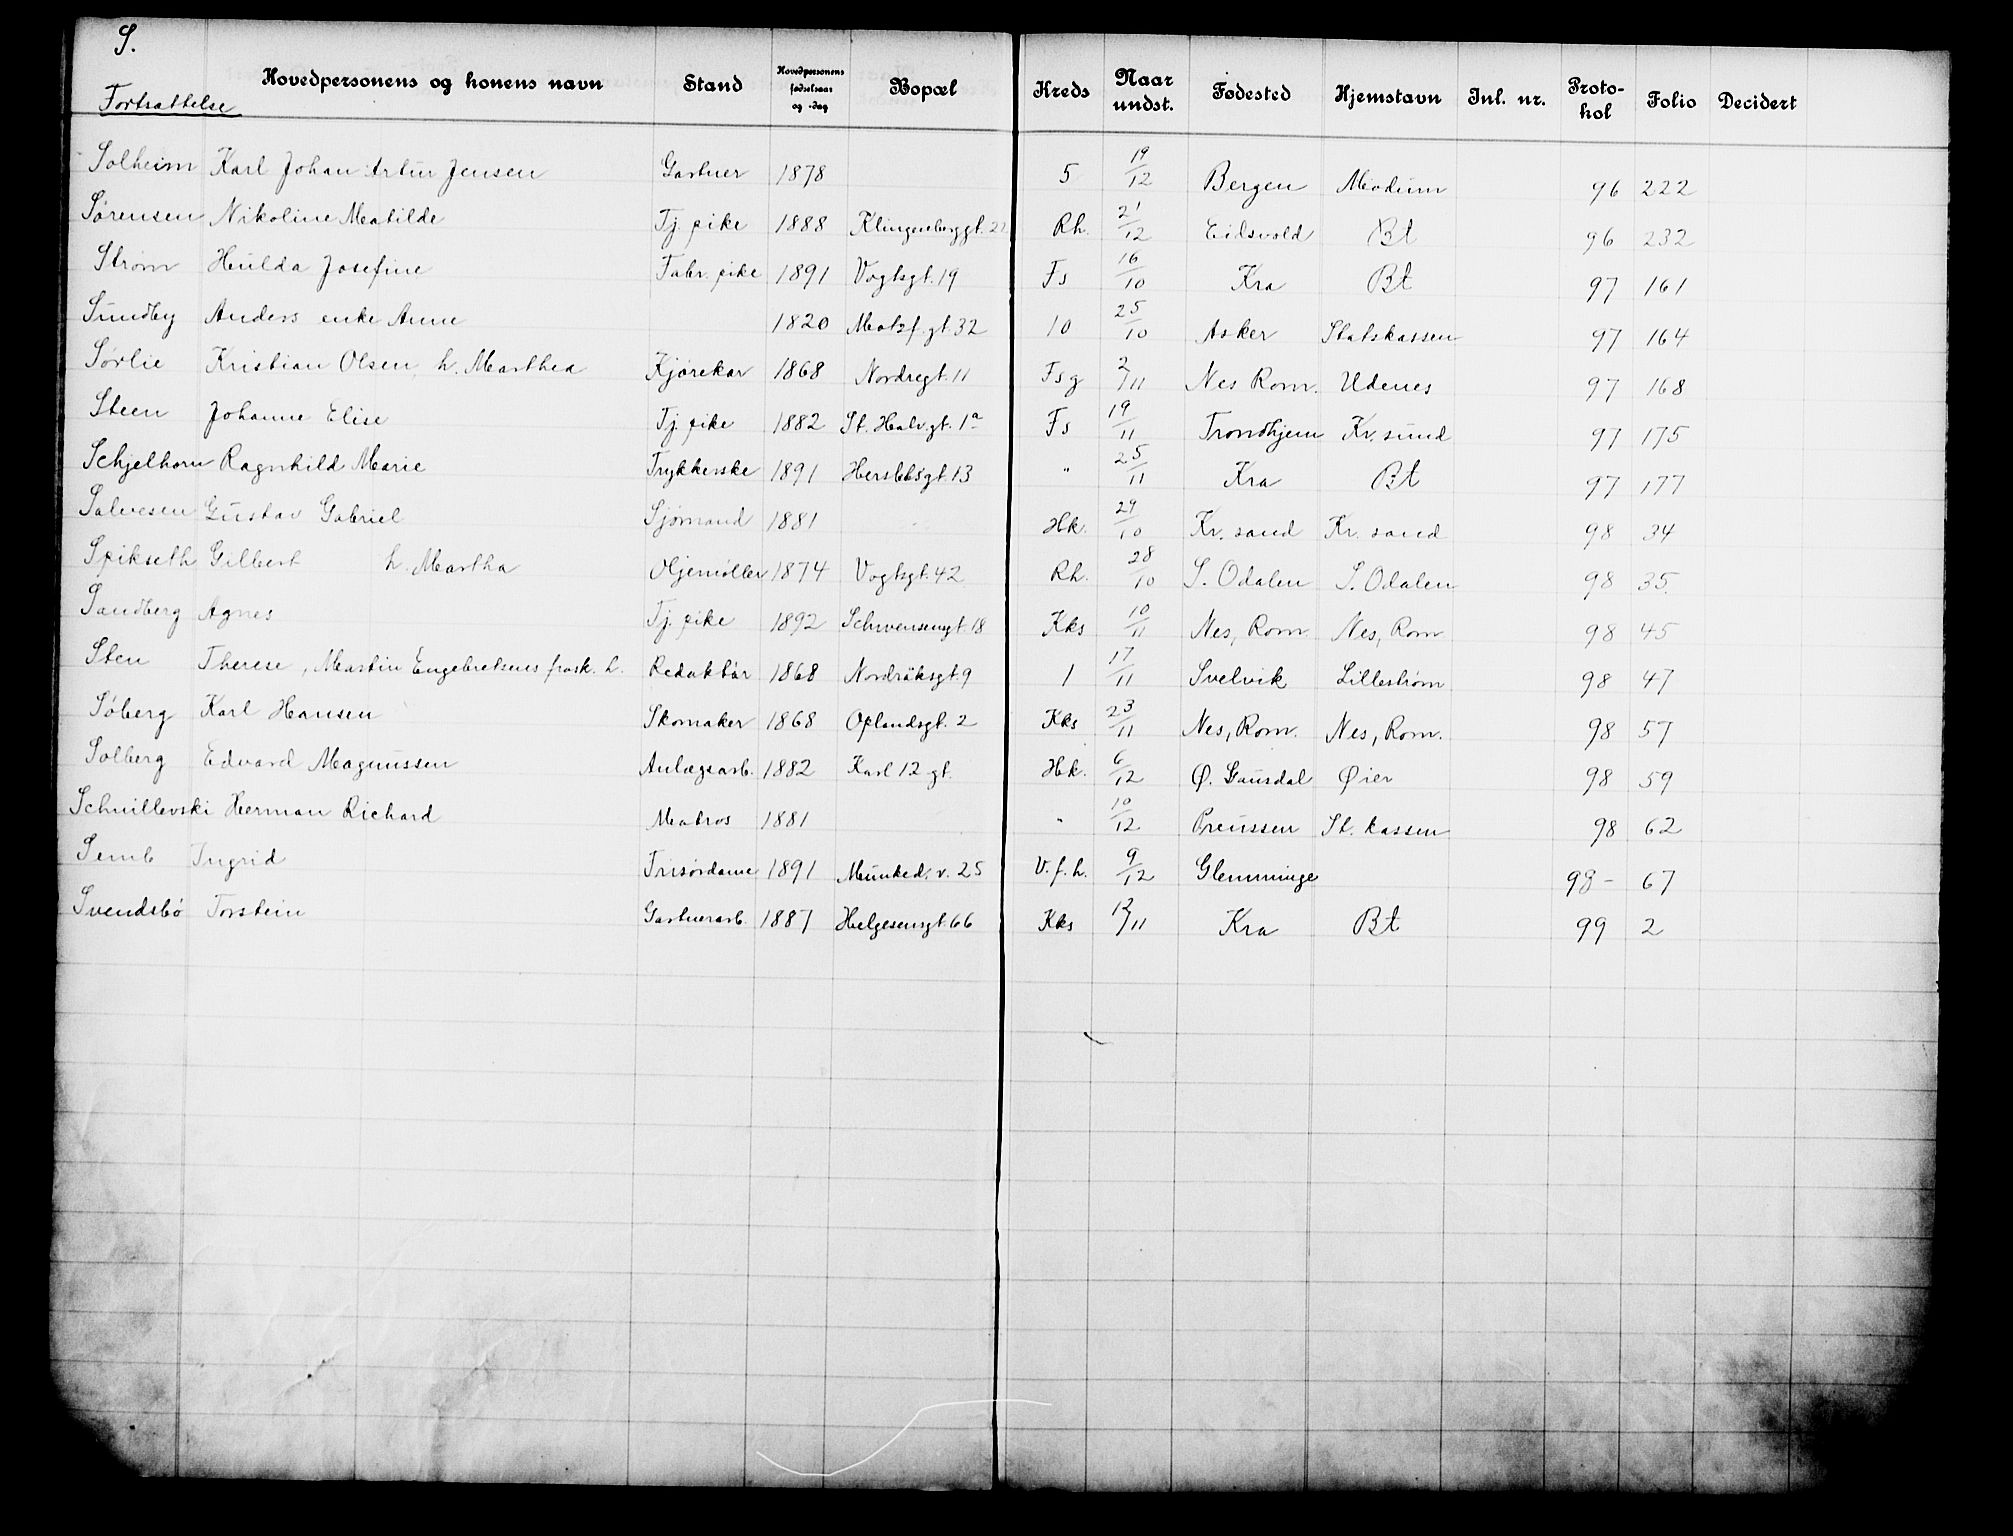 S.
Hovedpersonens og konens navn Stand Hovedpersonens fødselsaar og -dag Bopæl Kreds Naar undst. Fødested Hjemstavn Inl. nr. Protokol Folio Decidert
Fortsættelse
Solheim Karl Johan Artur Jensen Gartner 1878 5 19/12 Bergen Modum 96 222
Sørensen Nikoline Matilde Tj. pike 1888 Klingenberggt. Rh. 21/12 Eidsvold Bt 96 232
Strøm Hulda Josefine Fabr. pike 1891 Vogtsgt. 19 Fs 16/10 Kra Bt 97 161
Sundby Anders enke Anne 1820 Motzf. gt. 32 10 25/10 Asker Statskassen 97 164
Sørlie Kristian Olsen, h. Marthea Kjørekar 1868 Nordregt. 11 Fsg 2/11 Nes Rom. Udenes 97 168
Steen Johanne Elise Tj. pike 1882 St. Halv. gt. 1a Fs 19/11 Trondhjem Kr. sund 97 175
Schjelhorn Ragnhild Marie Trykkerske 1891 Herslebsgt. 13 " 25/11 Kra Bt 97 177
Salvesen Gustav Gabriel Sjømand 1881 Hk. 29/10 Kr. sand Kr. sand 98 34
Spikseth Gilbert h. Martha Oljemøller 1874 Vogtsgt. 42 Rh. 28/10 S. Odalen S. Odalen 98 35.
Sandberg Agnes Tj. pike 1892 Schwensengt. 18 Kks 10/11 Nes, Rom Nes, Rom 98 45
Sten Therese, Martin Engebretsens frask. h. Redaktør 1868 Nordråksgt. 9 1 17/11 Svelvik Lillestrøm 98 47
Søberg Karl Hansen Skomaker 1868 Oplandsgt. 2 Kks 23/11 Nes, Rom. Nes, Rom. 98 57
Solberg Edvard Magnussen Anlægsarb. 1882 Karl 12 gt. Hk. 6/12 Ø. Gausdal Øier 98 59
Schnillevski Herman Richard Matros 1881 " 10/12 Preussen St. kassen 98 62
Semb Ingrid Frisørdame 1891 Munked. v. 25 V. f. h. 9/12 Glemminge 98- 67
Svendsbø Torstein Gartnerarb. 1887 Helgesensgt. 66 Kks 12/11 Kra Bt 99 2